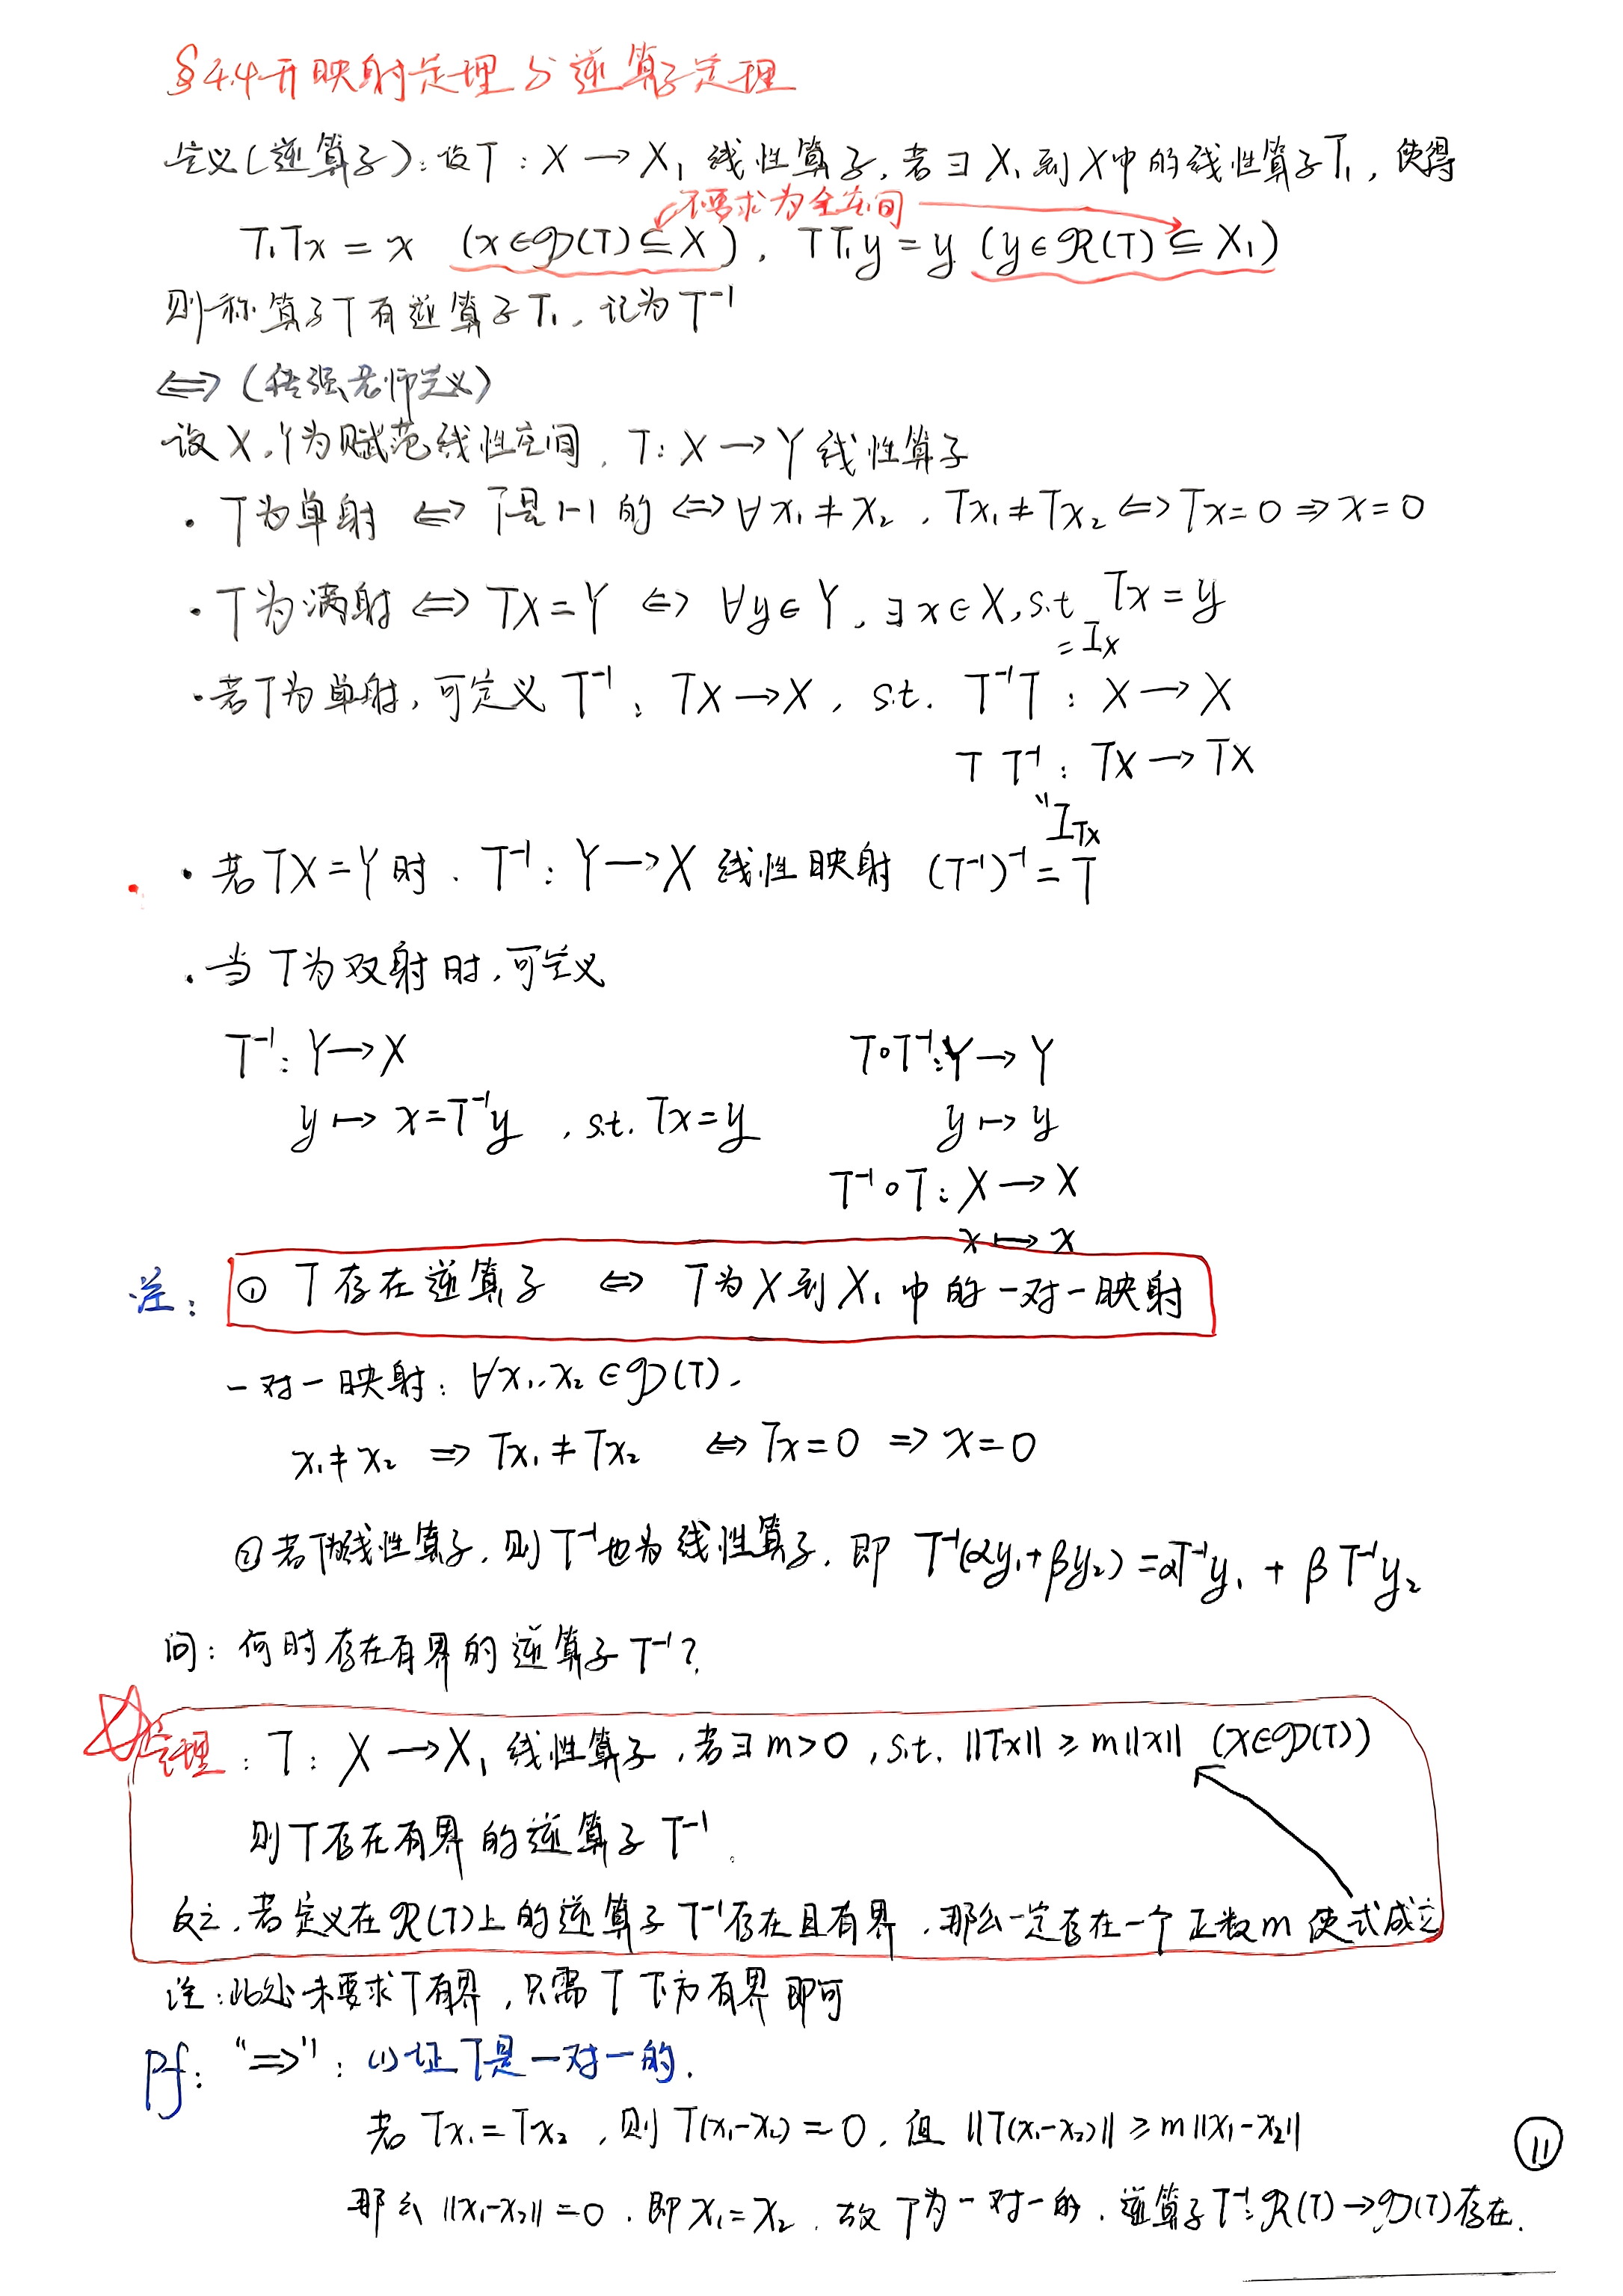 §4.4 开映射定理与逆算子定理
定义(逆算子): 设 T : X → X₁ 线性算子, 若∃ X₁ 到 X 中的线性算子 T₁, 使得
不要求为全空间
T₁Tx = x (x∈𝒟(T)⊆X), TT₁y = y (y∈ℛ(T)⊆X₁)
则称算子 T 有逆算子 T₁, 记为 T⁻¹
⇔ (老师定义)
设 X, Y为赋范线性空间, T: X → Y 线性算子
· T为单射 ⇔ T是1-1的 ⇔ ∀x₁≠x₂, Tx₁≠Tx₂ ⇔ Tx=0 ⇒ x=0
· T为满射 ⇔ TX=Y ⇔ ∀y∈Y, ∃x∈X, s.t Tx=y
= I_X
· 若T为单射, 可定义 T⁻¹: TX→X, s.t. T⁻¹T : X → X
T T⁻¹ : TX → TX
" I_TX
· 若TX=Y时. T⁻¹: Y→X 线性映射 (T⁻¹)⁻¹ = T
· 当T为双射时, 可定义
T⁻¹: Y→X T∘T⁻¹: Y→Y
y ↦ x=T⁻¹y , s.t. Tx=y y ↦ y
T⁻¹∘T: X→X
x ↦ x
注: ① T存在逆算子 ⇔ T为X到X₁中的一对一映射
一对一映射: ∀x₁, x₂∈𝒟(T),
x₁≠x₂ ⇒ Tx₁≠Tx₂ ⇔ Tx=0 ⇒ x=0
② 若T为线性算子, 则T⁻¹也为线性算子, 即 T⁻¹(αy₁+βy₂)=αT⁻¹y₁ + βT⁻¹y₂
问: 何时存在有界的逆算子T⁻¹?
定理: T: X→X₁ 线性算子, 若∃m>0, s.t. ||Tx|| ≥ m||x|| (x∈𝒟(T))
则T存在有界的逆算子T⁻¹.
反之, 若定义在ℛ(T)上的逆算子T⁻¹存在且有界, 那么一定存在一个正数m使式成立
注: 此处未要求T有界, 只需T下方有界即可
pf: "⇒": (1) 证T是一对一的.
若 Tx₁=Tx₂, 则 T(x₁-x₂)=0, 但 ||T(x₁-x₂)|| ≥ m||x₁-x₂||
那么||x₁-x₂||=0. 即x₁=x₂. 故T为一对一的. 逆算子T⁻¹: ℛ(T)→𝒟(T)存在.
⑪